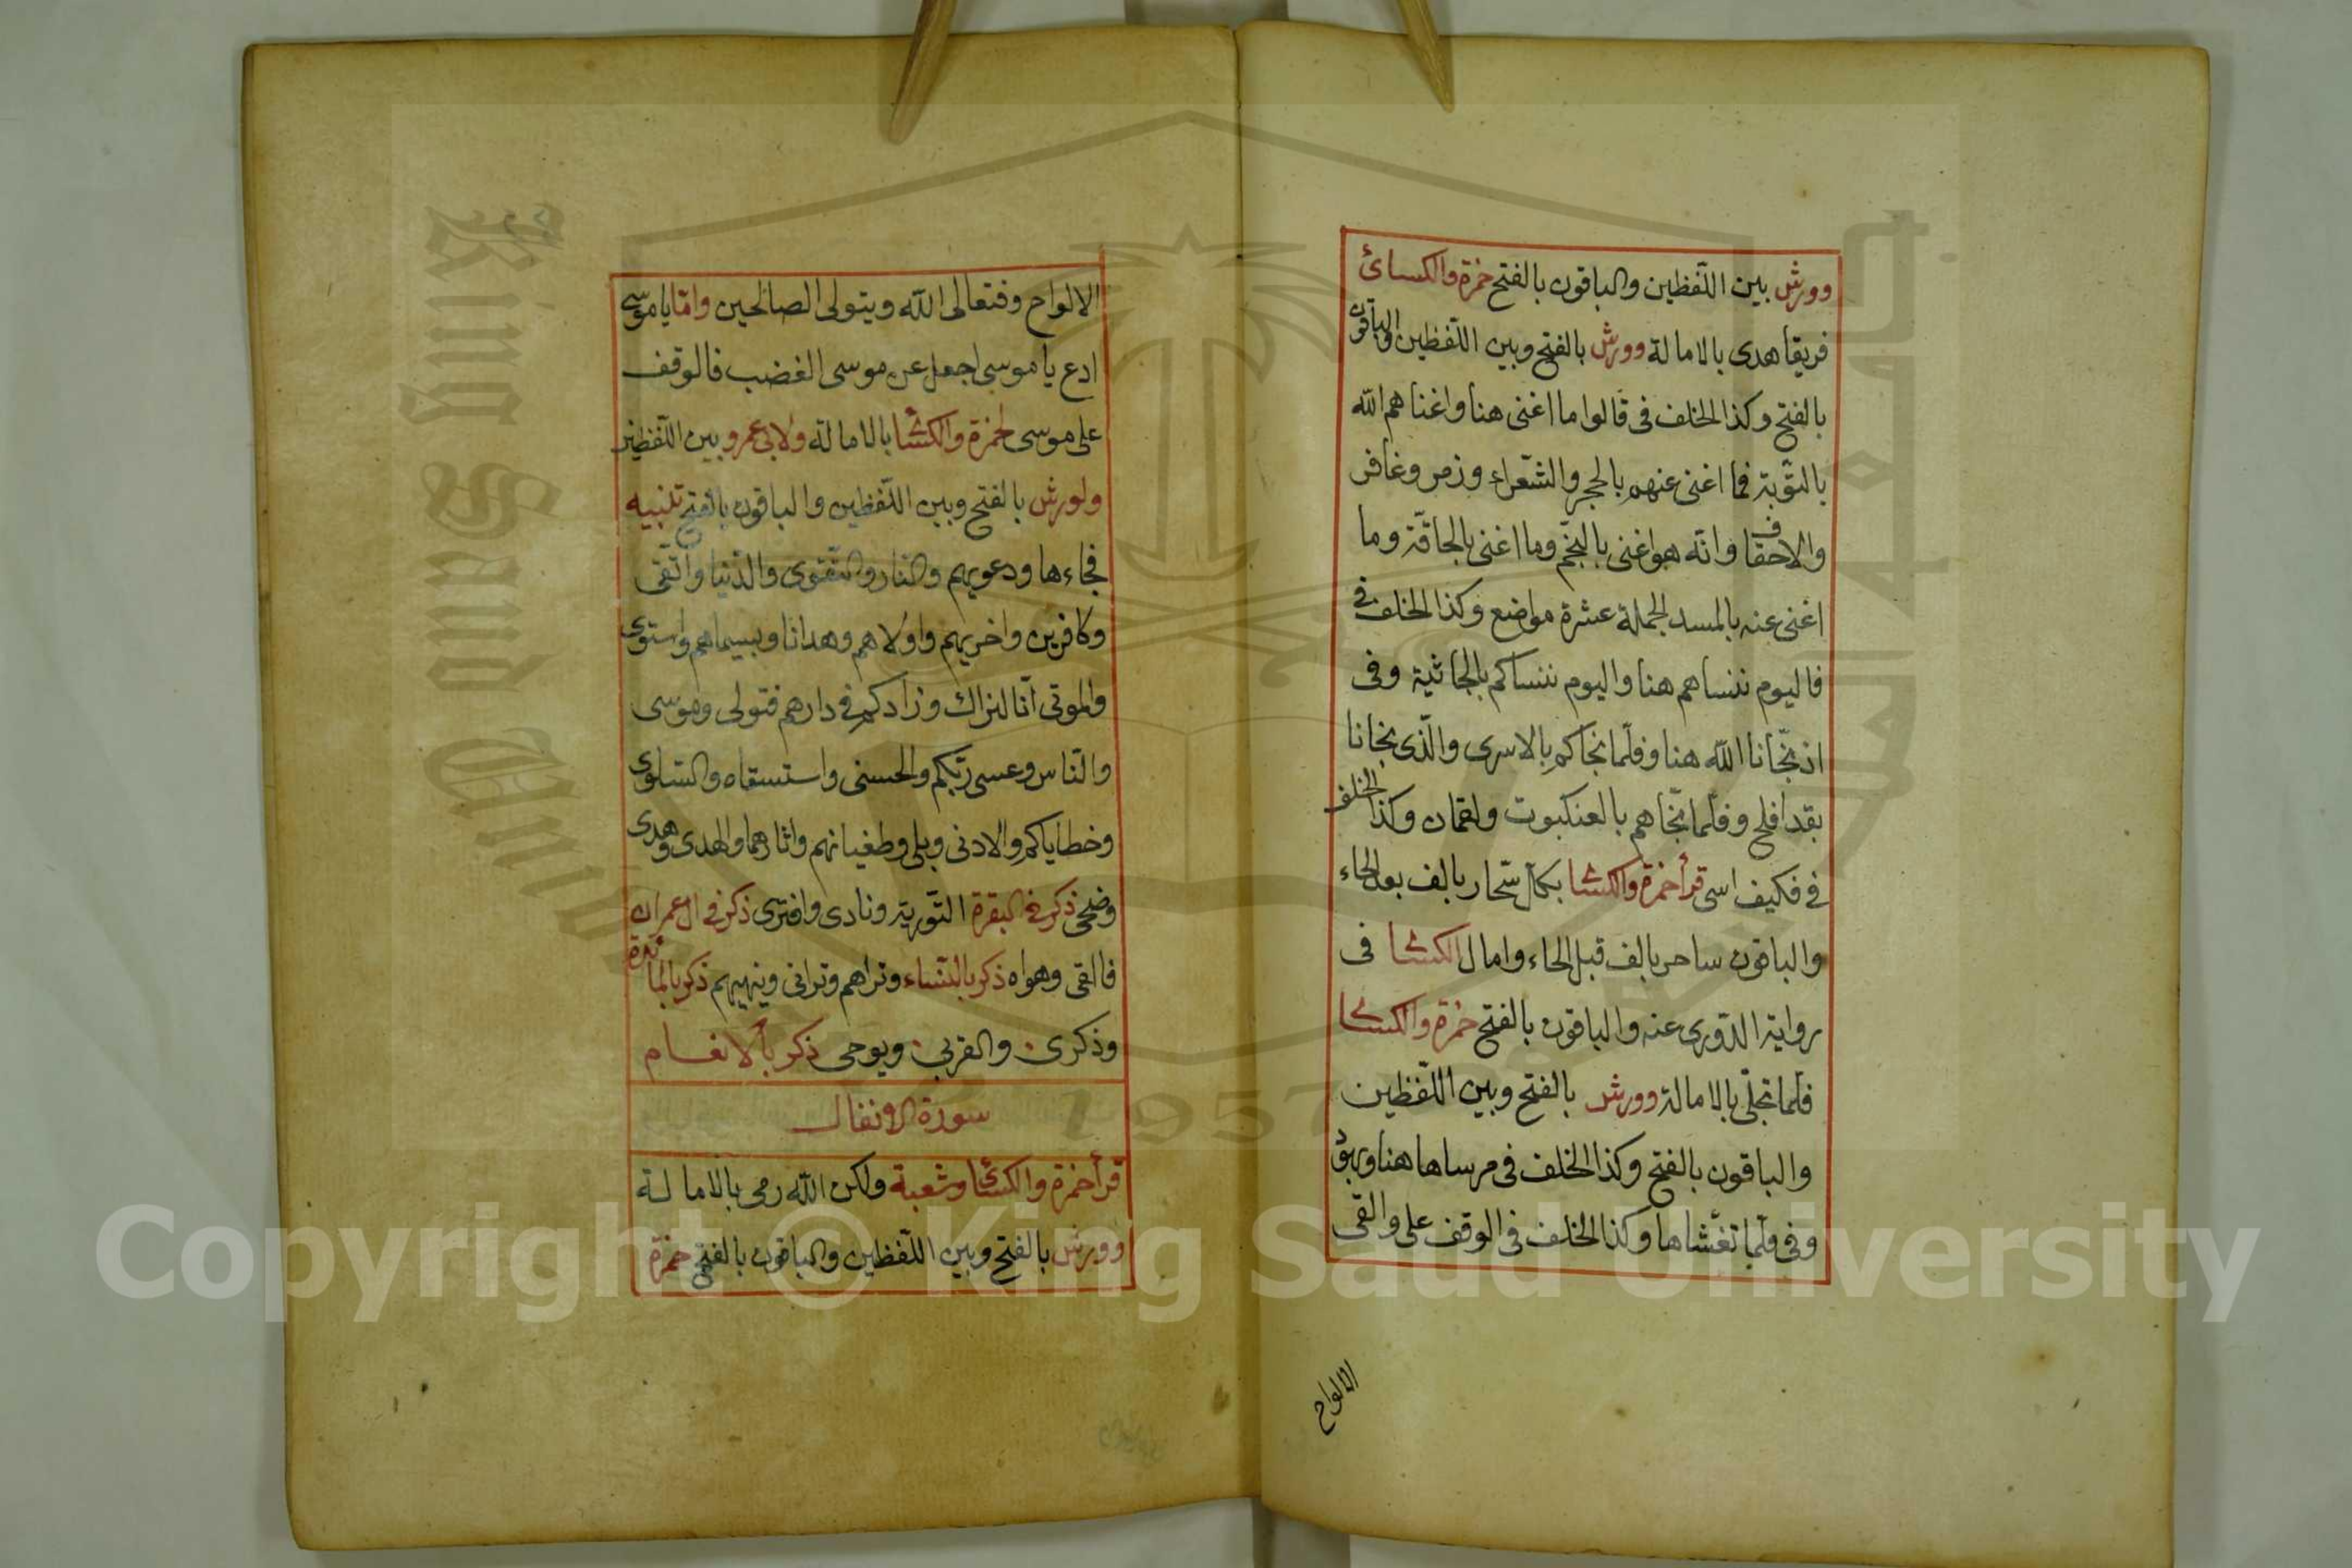 وورش بين اللّفظين والباقون بالفتح حمزة والكسائ
فريقا هدى بالامالة وورش بالفتح وبين اللّفظين والباقون
بالفتح وكذا الخلف فى قالوا ما اغنى هنا واغناهم اللّه
بالتّوبة فما اغنى عنهم بالحجر والشّعراء وزمر وغافر
والاحقاف وانّه هو اغنى بالنّجم وما اغنى بالحاقّة وما
اغنى عنه بالمسد الجملة عشرة مواضع وكذا الخلف فى
فاليوم ننساهم هنا واليوم ننساكم بالجاثية وفى
اذ نجّانا اللّه هنا وفلّما نجّاكم بالاسرى والّذى نجانا
بقد افلح وفلّما نجّاهم بالعنكبوت ولقمان وكذا الخلف
فى فكيف اسى قرأ حمزة والكسّا بكل سحّار بالف بعد الحاء
والباقون ساحر بالف قبل الحاء وامال الكسا فى
رواية الدّورى عنه والباقون بالفتح حمزة والكسا
فلّما تجلّى بالامالة وورش بالفتح وبين اللّفظين
والباقون بالفتح وكذا الخلف فى مرساها هنا
وفى فلّما تغشّاها وكذا الخلف فى الوقف على والقى
الالواح
الالواح وفتعالى اللّه ويتولى الصالحين وامّا يا موسى
ادع يا موسى اجعل عن موسى الغضب فالوقف
على موسى لحمزة والكسّا بالامالة ولابى عمرو بين اللّفظين
ولورش بالفتح وبين اللّفظين والباقون بالفتح تنبيه
فجاءها ودعويهم والنار والتّقوى والدّنيا واتّقى
وكافرين واخريهم واولاهم وهدانا وبسيماهم واستوى
والموتى انّا لنراك وزادكم فى دارهم فتولى وموسى
والنّاس وعسى ربّكم والحسنى واستسقاه والسّلوى
وخطاياكم والادنى وبلى وطغيانهم واثارهما والهدى وهدى
وضحى ذكر فى البقرة التّورية ونادى وافترى ذكر فى ال عمران
فالقى وهواه ذكر بالنّساء وتراهم وترانى وينهيهم ذكر بالمائدة
وذكرى والقربى ويوحى ذكر بالانعام
سورة الانفال
قرأ حمزة والكسّا وشعبة ولكن اللّه رمى بالامالة
وورش بالفتح وبين اللّفظين والباقون بالفتح حمزة
King Saud University
1957
Copyright © King Saud University